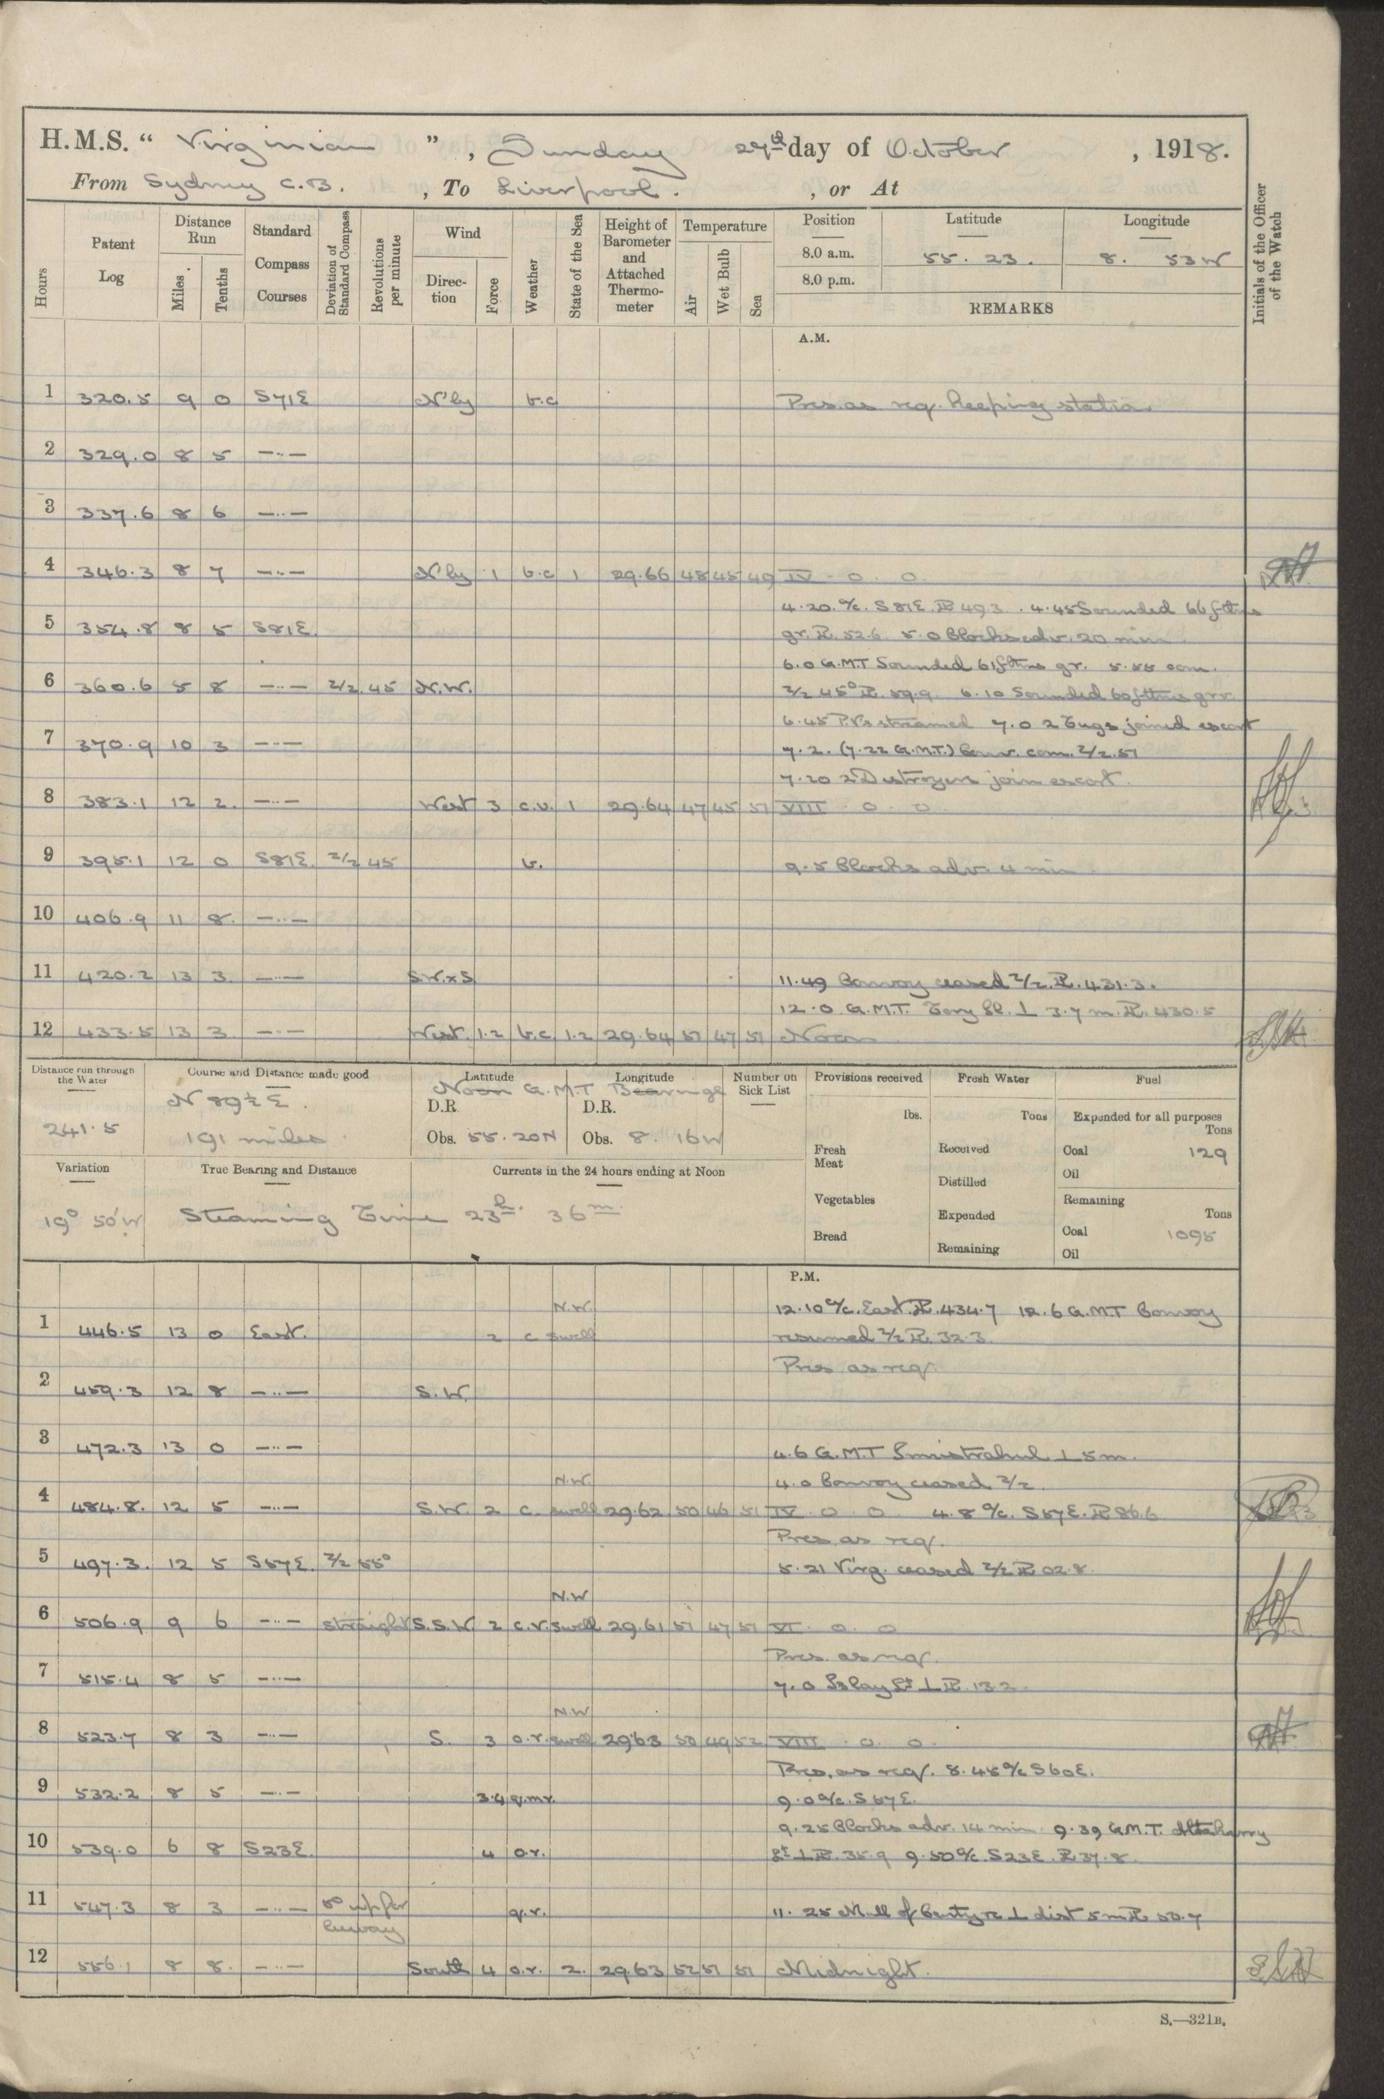 H.M.S. " Virginian ", Sunday 27th day of October, 1918.
From Sydney C.B., To Liverpool., or At
Hours
Patent Log
Distance Run
Miles.
Tenths
Standard Compass Courses
Deviation of Standard Compass
Revolutions per minute
Wind
Direction
Force
Weather
State of the Sea
Height of Barometer and Attached Thermometer
Temperature
Air
Wet Bulb
Sea
Position Latitude Longitude
8.0 a.m. 55. 23. 8. 53W
8.0 p.m.
REMARKS
Initials of the Officer of the Watch
A.M.
1 320.5 9 0 S71E N'ly b.c Pres. as req. keeping station
2 329.0 8 5 —..—
3 337.6 8 6 —..—
4 346.3 8 7 —..— N'ly 1 b.c 1 29.66 48 45 49 IV 0. 0.
4.20 a/c. S81E. PL 49.3. 4.45 Sounded 66 fthms
5 354.8 8 5 S81E. gr. PL. 52.6 5.0 Clocks adv. 20 min
6.0 G.M.T Sounded 61 fthms gr. 5.55 com.
6 360.6 5 8 —..— Z/Z 45 N.W. Z/Z 45° PL. 59.9. 6.10 Sounded 60 fthms grv.
6.45 P.Vs streamed 7.0 2 Tugs joined escort
7 370.9 10 3 —..— 7.2. (7.22 G.M.T.) Conv. com. Z/Z. 51
7.20 2 Destroyers join escort.
8 383.1 12 2. —..— West 3 c.v. 1 29.64 47 45 51 VIII 0. 0
9 395.1 12 0 S81E. Z/Z 45 v. 9.5 Clocks adv. 4 min
10 406.9 11 8. —..—
11 420.2 13 3 —..— S.W.xS 11.49 Convoy ceased Z/Z. PL. 431.3.
12.0 G.M.T. Tory Id. ⊥ 3.7 m. PL. 430.5
12 433.5 13 3 —..— West. 1.2 b.c 1.2 29.64 51 47 51 Noon
Distance run through the Water
241.5
Course and Distance made good
N 89½ E.
191 miles.
Latitude Longitude
Noon G.M.T Bearings
D.R. D.R.
Obs. 55. 20N Obs. 8. 16W
Number on Sick List
Provisions received
lbs.
Fresh Meat
Vegetables
Bread
Fresh Water
Tons
Received
Distilled
Expended
Remaining
Fuel
Expended for all purposes
Tons
Coal 129
Oil
Remaining
Tons
Coal 1095
Oil
Variation
19° 50'W
True Bearing and Distance
Currents in the 24 hours ending at Noon
Steaming Time 23h. 36m.
P.M.
N.W. 12.10 a/c. East. PL. 434.7 12.6 G.M.T Convoy
1 446.5 13 0 East. 2 c swell resumed Z/Z PL. 32.3.
Pres as req.
2 459.3 12 8 —..— S.W.
3 472.3 13 0 —..— 4.6 G.M.T Inistrahul ⊥ 5m.
N.W. 4.0 Convoy ceased Z/Z.
4 484.8. 12 5 —..— S.W. 2 c. swell 29.62 50 46 51 IV 0 0 4.8 a/c. S57E. PL 86.6
Pres as req.
5 497.3. 12 5 S57E. Z/Z 55° 5.21 Virg. ceased Z/Z PL 02.8.
N.W
6 506.9 9 6 —..— straight S.S.W 2 c.v. swell 29.61 51 47 51 VI. 0. 0
Pres. as req.
7 515.4 8 5 —..— 7.0 Islay Lt ⊥ PL. 13.2.
N.W
8 523.7 8 3 —..— S. 3 o.r. swell 29.63 50 49 52 VIII 0. 0.
Pres. as req. 8.45 a/c S60E.
9 532.2 8 5 —..— 3.4 q.m.r. 9.0 a/c. S57E.
9.25 Clocks adv. 14 min. 9.39 G.M.T. Altacarry
10 539.0 6 8 S23E. 4 o.r. Lt ⊥ PL. 35.9 9.50 a/c. S23E. PL 37.8.
11 547.3 8 3 —..— 5° up for leeway q.r. 11. 25 Mull of Cantyre ⊥ dist 5 m PL 50.7
12 556.1 8 8. —..— South 4 o.r. 2. 29.63 52 51 51 Midnight.
S.—321B.